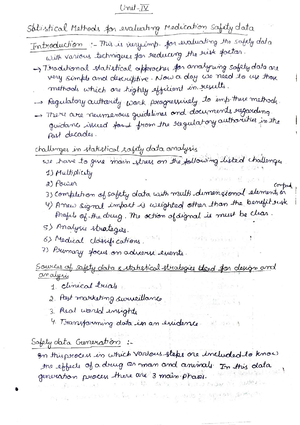 Unit-IV
Satistical Methods for evaluating Medication Safety data
Introduction :- This is very imp. for evaluating the safety data
with various techniques for reducing the risk factor.
→ Traditional statistical approaches for analysing safety data are
very simple and descriptive. Now a day we need to use those
methods which are highly efficient in results.
→ Regulatory authority work progressively to imp these methods.
→ There are numerous guidelines and documents regarding
guidance issued from the regulatory authorities in the
Past decades.
challenges in statistical safety data analysis
we have to give main stress on the following listed challenges
1) Multiplicity
2) Power
3) Completion of safety data with multi-dimensional elements or
4) A new signal impact is weighted other than the benefit risk
Profile of the drug. The action of signal is must be clear.
5) Analyse strategies.
6) Medical classifications
7) Primary focus on adverse events.
Sources of safety data & statistical strategies used for design and
analysis
1. Clinical trials
2. Post marketing surveillance
3. Real world insights
4. Transforming data in an evidence
Safety data Generation :-
On the process in which various steps are included to know
the effects of a drug on man and animals. In this data
generation process there are 3 main phases.